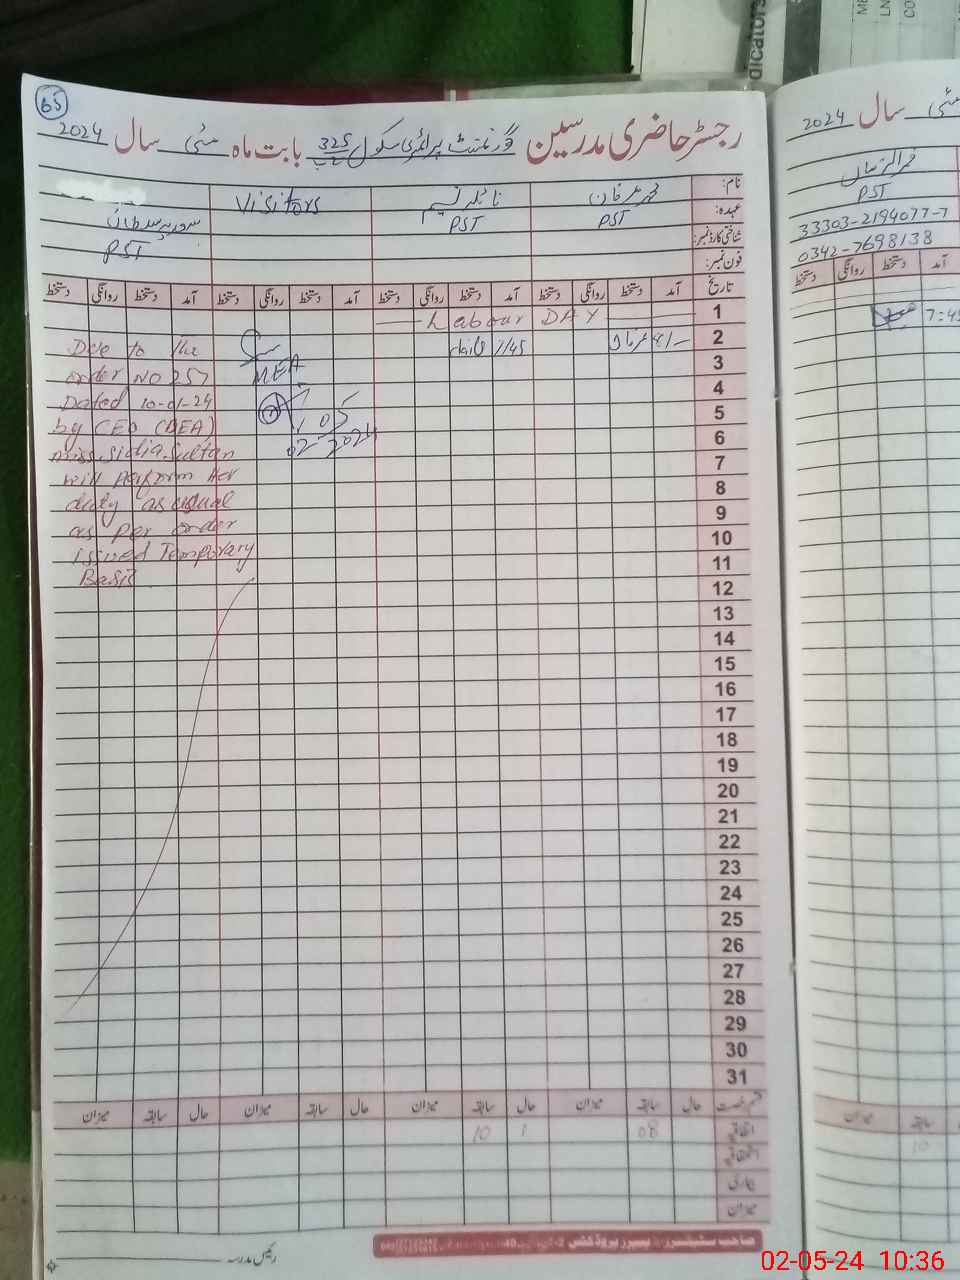 65
رجسٹر حاضری مدرسین گورنمنٹ پرائمری سکول 325 بابت ماہ مئی سال 2024
نام:
محمد عرفان
Visitors
عہدہ:
PST
PST
PST
شناختی کارڈ نمبر:
فون نمبر:
تاریخ آمد دستخط روانگی دستخط آمد دستخط روانگی دستخط آمد دستخط روانگی دستخط آمد دستخط روانگی دستخط
1 Labour DAY
2 عرفان 7/45
3
4
5
6
7
8
9
10
11
12
13
14
15
16
17
18
19
20
21
22
23
24
25
26
27
28
29
30
31
MEA
02-05-2024
Due to the
order NO 257
Dated 10-01-24
by CEO (DEA)
miss Sidia Sultan
will Perform Her
duty as usual
as per order
issued Temporary
Basis.
حال سابقہ میزان حال سابقہ میزان حال سابقہ میزان حال سابقہ میزان
اتفاقیہ 08 1 10
بیماری
میزان
رئیس مدرسہ
سال 2024
مئی
PST
33303-2194077-7
0342-7698138
آمد دستخط روانگی دستخط
7:45
سابقہ میزان
10
dicators
02-05-24 10:36